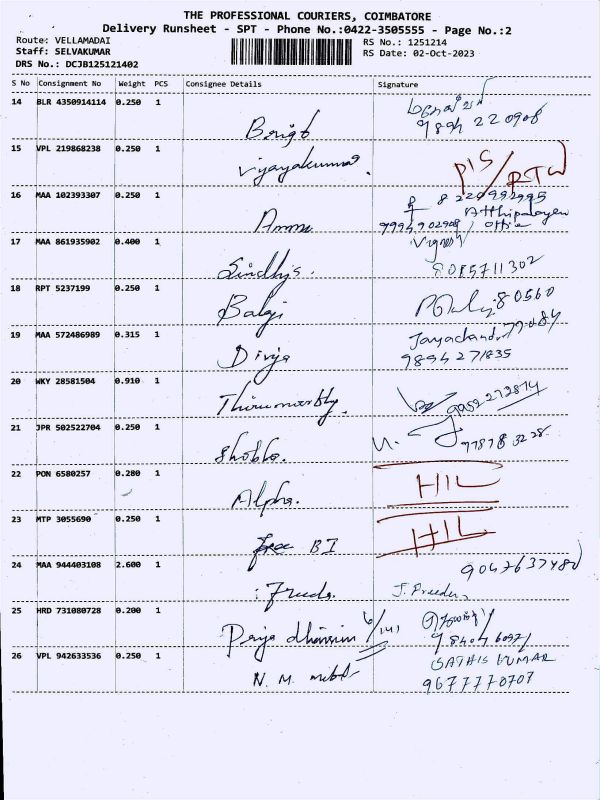 THE PROFESSIONAL COURIERS, COIMBATORE
Delivery Runsheet - SPT - Phone No.:0422-3505555 - Page No.:2
Route: VELLAMADAI
RS No.: 1251214
Staff: SELVAKUMAR
RS Date: 02-Oct-2023
DRS No.: DCJB125121402
S No Consignment No Weight PCS Consignee Details Signature
14 BLR 4350914114 0.250 1
9894 220908
15 VPL 219868238 0.250 1
Vijayakumar.
16 MAA 102393307 0.250 1
8220992995
Ammu
9994902908
office
Vignesh
17 MAA 861935902 0.400 1
8085711302
18 RPT 5237199 0.250 1
Balaji
80560
19 MAA 572486989 0.315 1
77084
Divya
9894271835
20 WKY 28581504 0.910 1
Thirumoorthy.
9952272874
21 JPR 502522704 0.250 1
Shobha.
22 PON 6580257 0.280 1
HIL
Alpha.
23 MTP 3055690 0.250 1
HIL
BI
24 MAA 944403108 2.600 1
Freeda.
J. Freeda,
25 HRD 731080728 0.200 1
Priya dharsini 6/141
26 VPL 942633536 0.250 1
SATHIS KUMAR
N. M.
9677770707